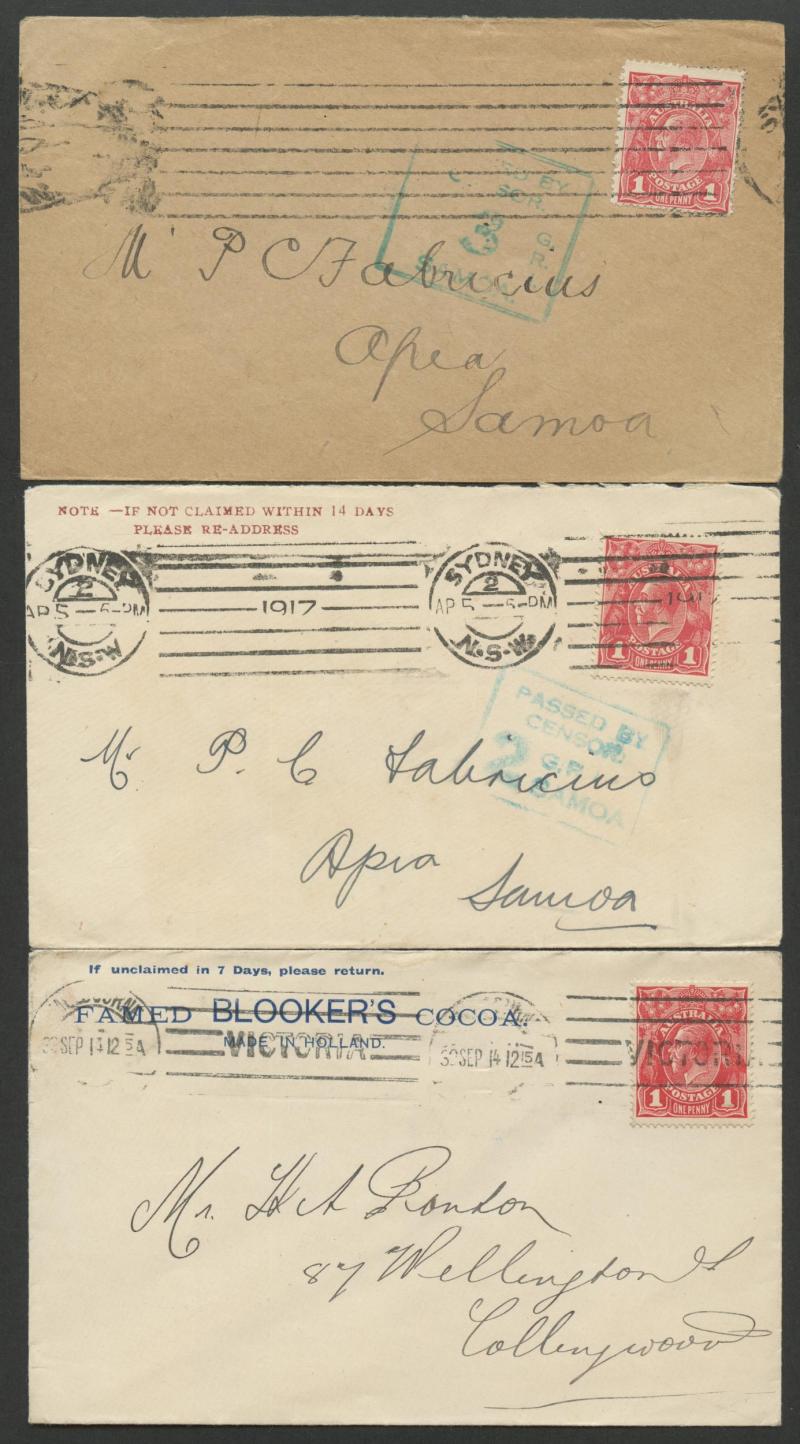 AUSTRALIA
1 POSTAGE 1
ONE PENNY
BY
3
G.
R.
SAMOA.
Mr P C Fabricius
Apia
Samoa
NOTE —IF NOT CLAIMED WITHIN 14 DAYS
PLEASE RE-ADDRESS
SYDNEY
2
AP 5 — 6-PM
N.S.W.
1917
SYDNEY
2
AP 5 — 6-PM
N.S.W.
1 POSTAGE 1
ONE PENNY
PASSED BY
CENSOR
2 G.R.
SAMOA
Mr. P. C Fabricius
Apia
Samoa
If unclaimed in 7 Days, please return.
FAMED BLOOKER'S COCOA.
MADE IN HOLLAND.
30 SEP 14 12 15 A
VICTORIA
30 SEP 14 12 15 A
VICTORIA
AUSTRALIA
1 POSTAGE 1
ONE PENNY
Mr. H A Rondon
87 Wellington St
Collingwood